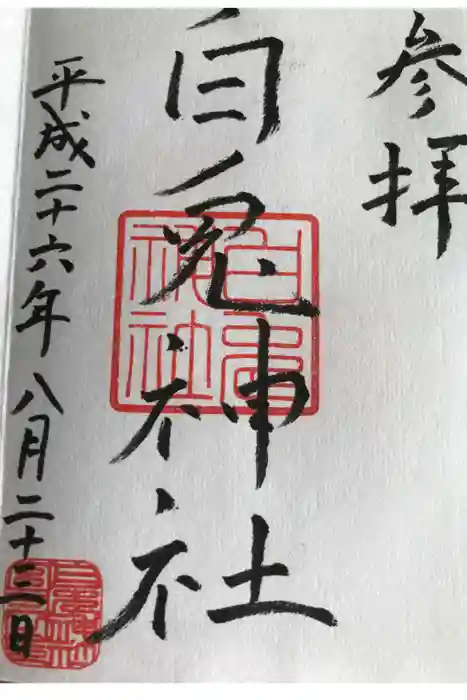 参拝
白兎神社
平成二十六年八月二十三日